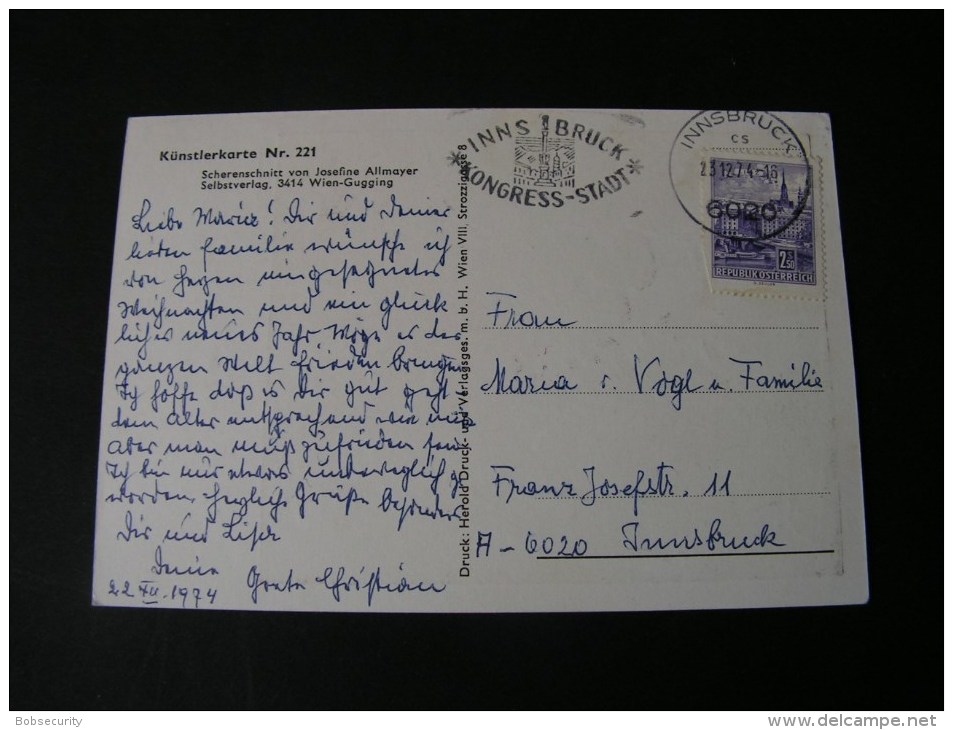 Künstlerkarte Nr. 221
Scherenschnitt von Josefine Allmayer
Selbstverlag, 3414 Wien-Gugging
Liebe Maria! Dir und Deiner
lieben Familie wünsche ich
von Herzen ein gesegnetes
Weihnachten und ein glück
liches neues Jahr. Möge es der
ganzen Welt Frieden bringen
Ich hoffe daß es Dir gut geht
dem Alter entsprechend wie mir
Aber man muß zufrieden sein
Ich bin nur etwas unbeweglich ge
worden. Herzliche Grüße besonders
Dir und
Deine
Greta Christian
22 XII. 1974
Druck: Herold Druck- und Verlagsges. m. b. H. Wien VIII, Strozzigasse 8
INNSBRUCK
KONGRESS-STADT
INNSBRUCK
CS
23.12.74-18
6020
2.50
REPUBLIK ÖSTERREICH
Frau
Maria v. Vogl u. Familie
Franz Josefstr. 11
A - 6020 Innsbruck
Bobsecurity
www.delcampe.net